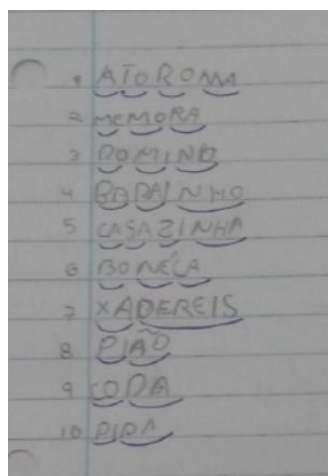 1 ATOROMA
2 MEMORA
3 DOMINO
4 BARAINHO
5 CASAZINHA
6 BONÉCA
7 XADEREIS
8 PIÃO
9 CODA
10 PIPA